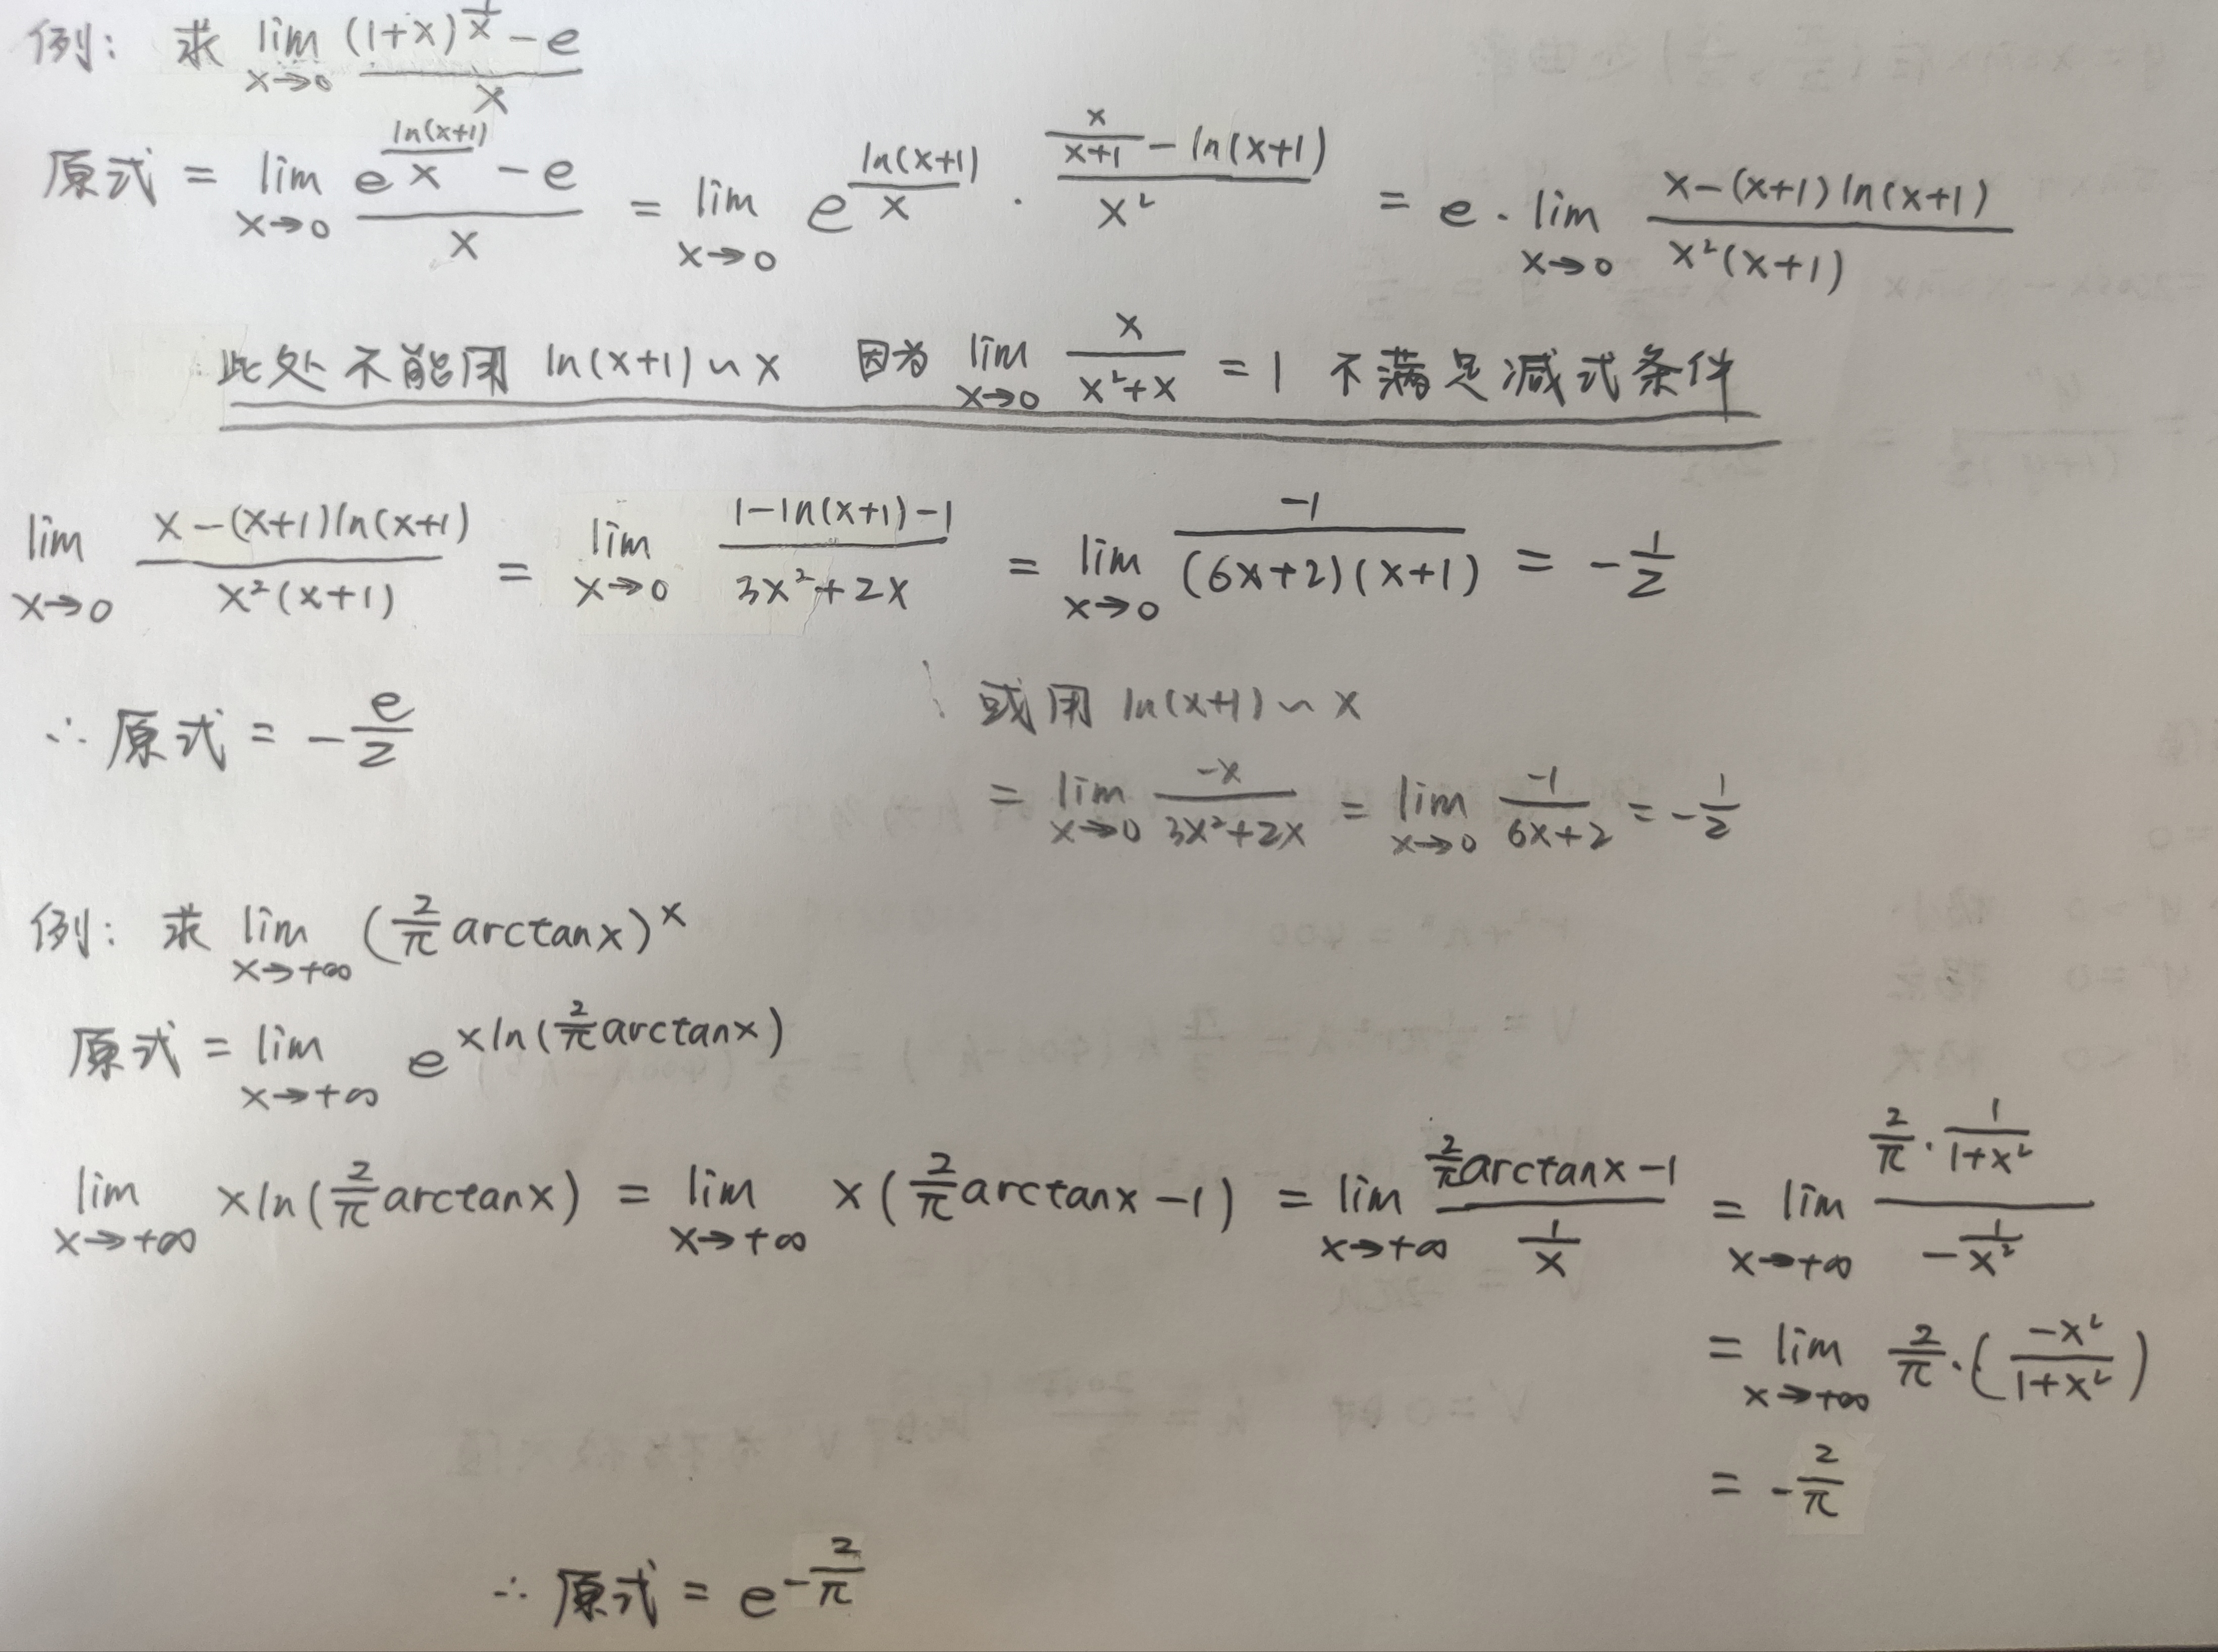 例: 求 lim_{x→0} ((1+x)^{1/x} - e)/x
原式 = lim_{x→0} (e^{ln(x+1)/x} - e)/x = lim_{x→0} e^{ln(x+1)/x} · (x/(x+1) - ln(x+1))/x² = e · lim_{x→0} (x-(x+1)ln(x+1))/(x²(x+1))
此处不能用 ln(x+1) ~ x 因为 lim_{x→0} x/(x²+x) = 1 不满足减式条件
lim_{x→0} (x-(x+1)ln(x+1))/(x²(x+1)) = lim_{x→0} (1-ln(x+1)-1)/(3x²+2x) = lim_{x→0} -1/((6x+2)(x+1)) = -1/2
∴ 原式 = -e/2
或用 ln(x+1) ~ x
= lim_{x→0} -x/(3x²+2x) = lim_{x→0} -1/(6x+2) = -1/2
例: 求 lim_{x→+∞} (2/π arctanx)^x
原式 = lim_{x→+∞} e^{xln(2/π arctanx)}
lim_{x→+∞} xln(2/π arctanx) = lim_{x→+∞} x(2/π arctanx - 1) = lim_{x→+∞} (2/π arctanx - 1)/(1/x) = lim_{x→+∞} (2/π · 1/(1+x²))/(-1/x²)
= lim_{x→+∞} 2/π · (-x²/(1+x²))
= -2/π
∴ 原式 = e^{-2/π}